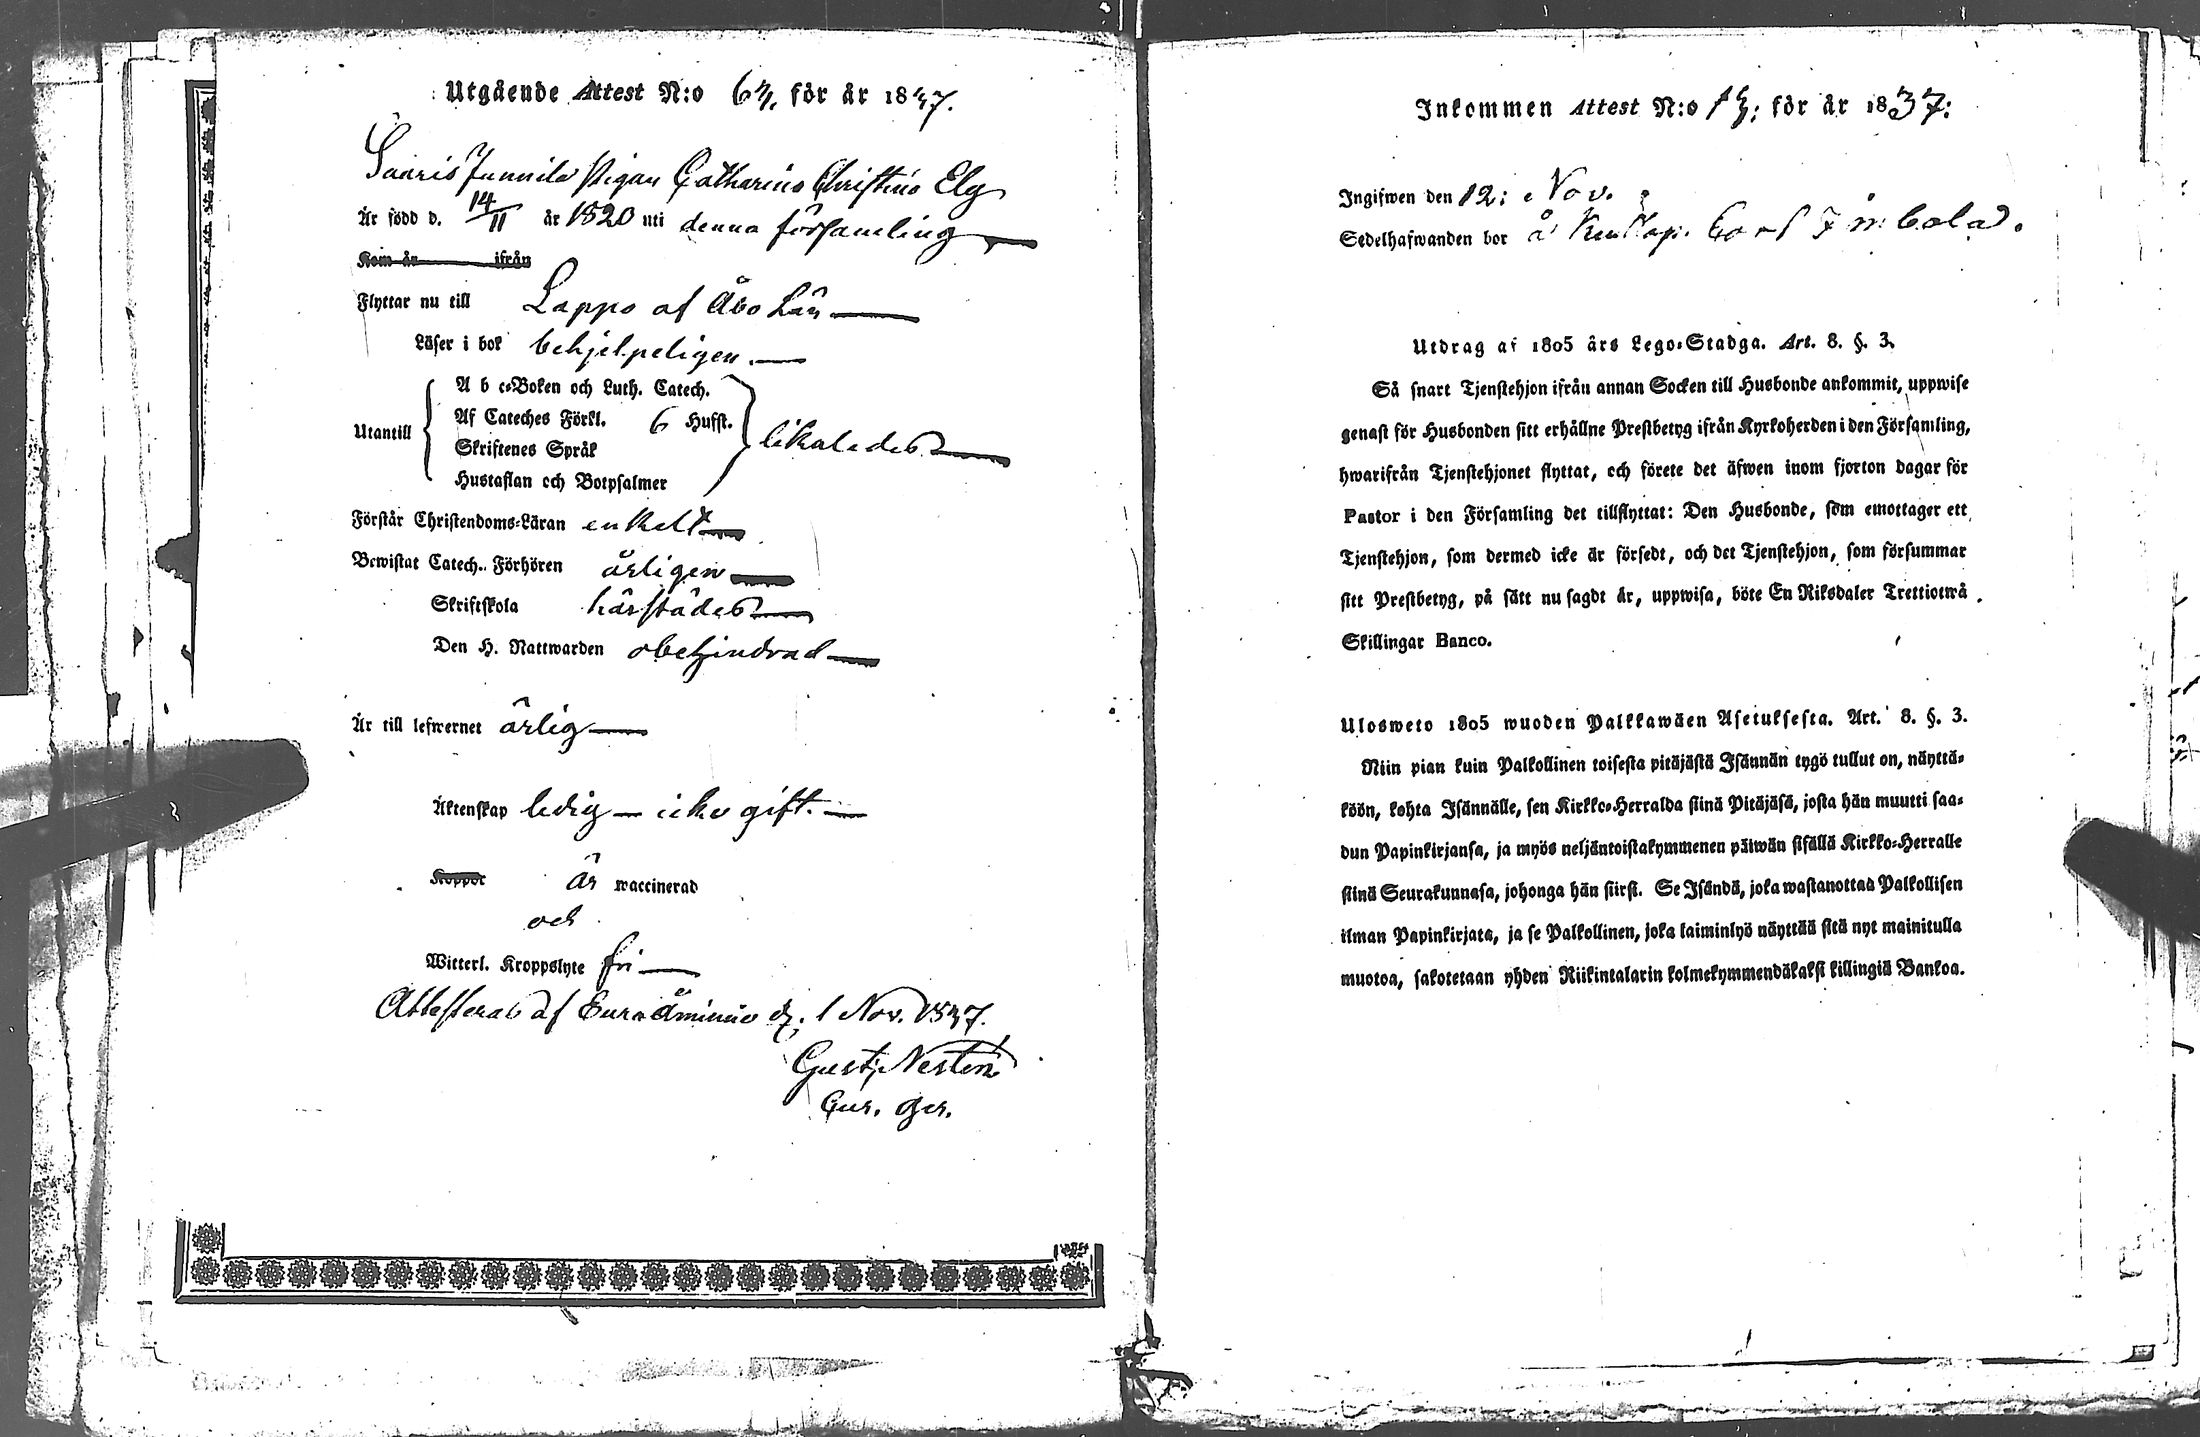 Utgående Attest N:o 63. för år 1837.
Saaris Junnila Pigan Catharina Christina Ely
Är född d. 14/11 år 1820 uti denna församling
Kom år ifrån
Flyttar nu till Lappo af Åbo Län
Läser i bok behjelpeligen.
A b c-Boken och Luth. Catech.
Af Cateches Förkl. 6 Hufst.
Utantill likaledes
Skriftenes Språk
Hustaflan och Botpsalmer
Förstår Christendoms-Läran enkelt
Bewistat Catech. Förhören årligen
Skriftskola härstädes
Den H. Nattwarden obehindrad
Är till lefwernet ärlig
Äktenskap ledig — icke gift.
Koppor är waccinerad
och
Witterl. Kroppslyte fri
Attesteras af Eura Åminne d. 1 Nov. 1837.
Gust. Nestén
Inkommen Attest N:o 13: för år 1837:
Ingifwen den 12: Nov.
Sedelhafwanden bor å
Utdrag af 1805 års Lego-Stadga. Art. 8. §. 3.
Så snart Tjenstehjon ifrån annan Socken till Husbonde ankommit, uppwise
genast för Husbonden sitt erhållne Prestbetyg ifrån Kyrkoherden i den Församling,
hwarifrån Tjenstehjonet flyttat, och förete det äfwen inom fjorton dagar för
Pastor i den Församling det tillflyttat: Den Husbonde, som emottager ett
Tjenstehjon, som dermed icke är försedt, och det Tjenstehjon, som försummar
sitt Prestbetyg, på sätt nu sagdt är, uppwisa, böte En Riksdaler Trettiotwå
Skillingar Banco.
Ulosweto 1805 wuoden Palkkawäen Asetuksesta. Art. 8. §. 3.
Niin pian kuin Palkollinen toisesta pitäjästä Isännän tygö tullut on, näyttä-
köön, kohta Isännälle, sen Kirkko-Herralda siinä Pitäjäsä, josta hän muutti saa-
dun Papinkirjansa, ja myös neljäntoistakymmenen päiwän sisällä Kirkko-Herralle
siinä Seurakunnasa, johonga hän siirsi. Se Isändä, joka wastanottaa Palkollisen
ilman Papinkirjata, ja se Palkollinen, joka laiminlyö näyttää sitä nyt mainitulla
muotoa, sakotetaan yhden Riikintalarin kolmekymmendäkaksi killingiä Bankoa.